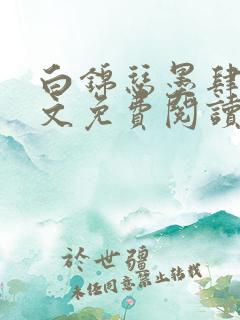 白锦瑟墨肆
文免費閱讀
於世疆
未经同意禁止转载